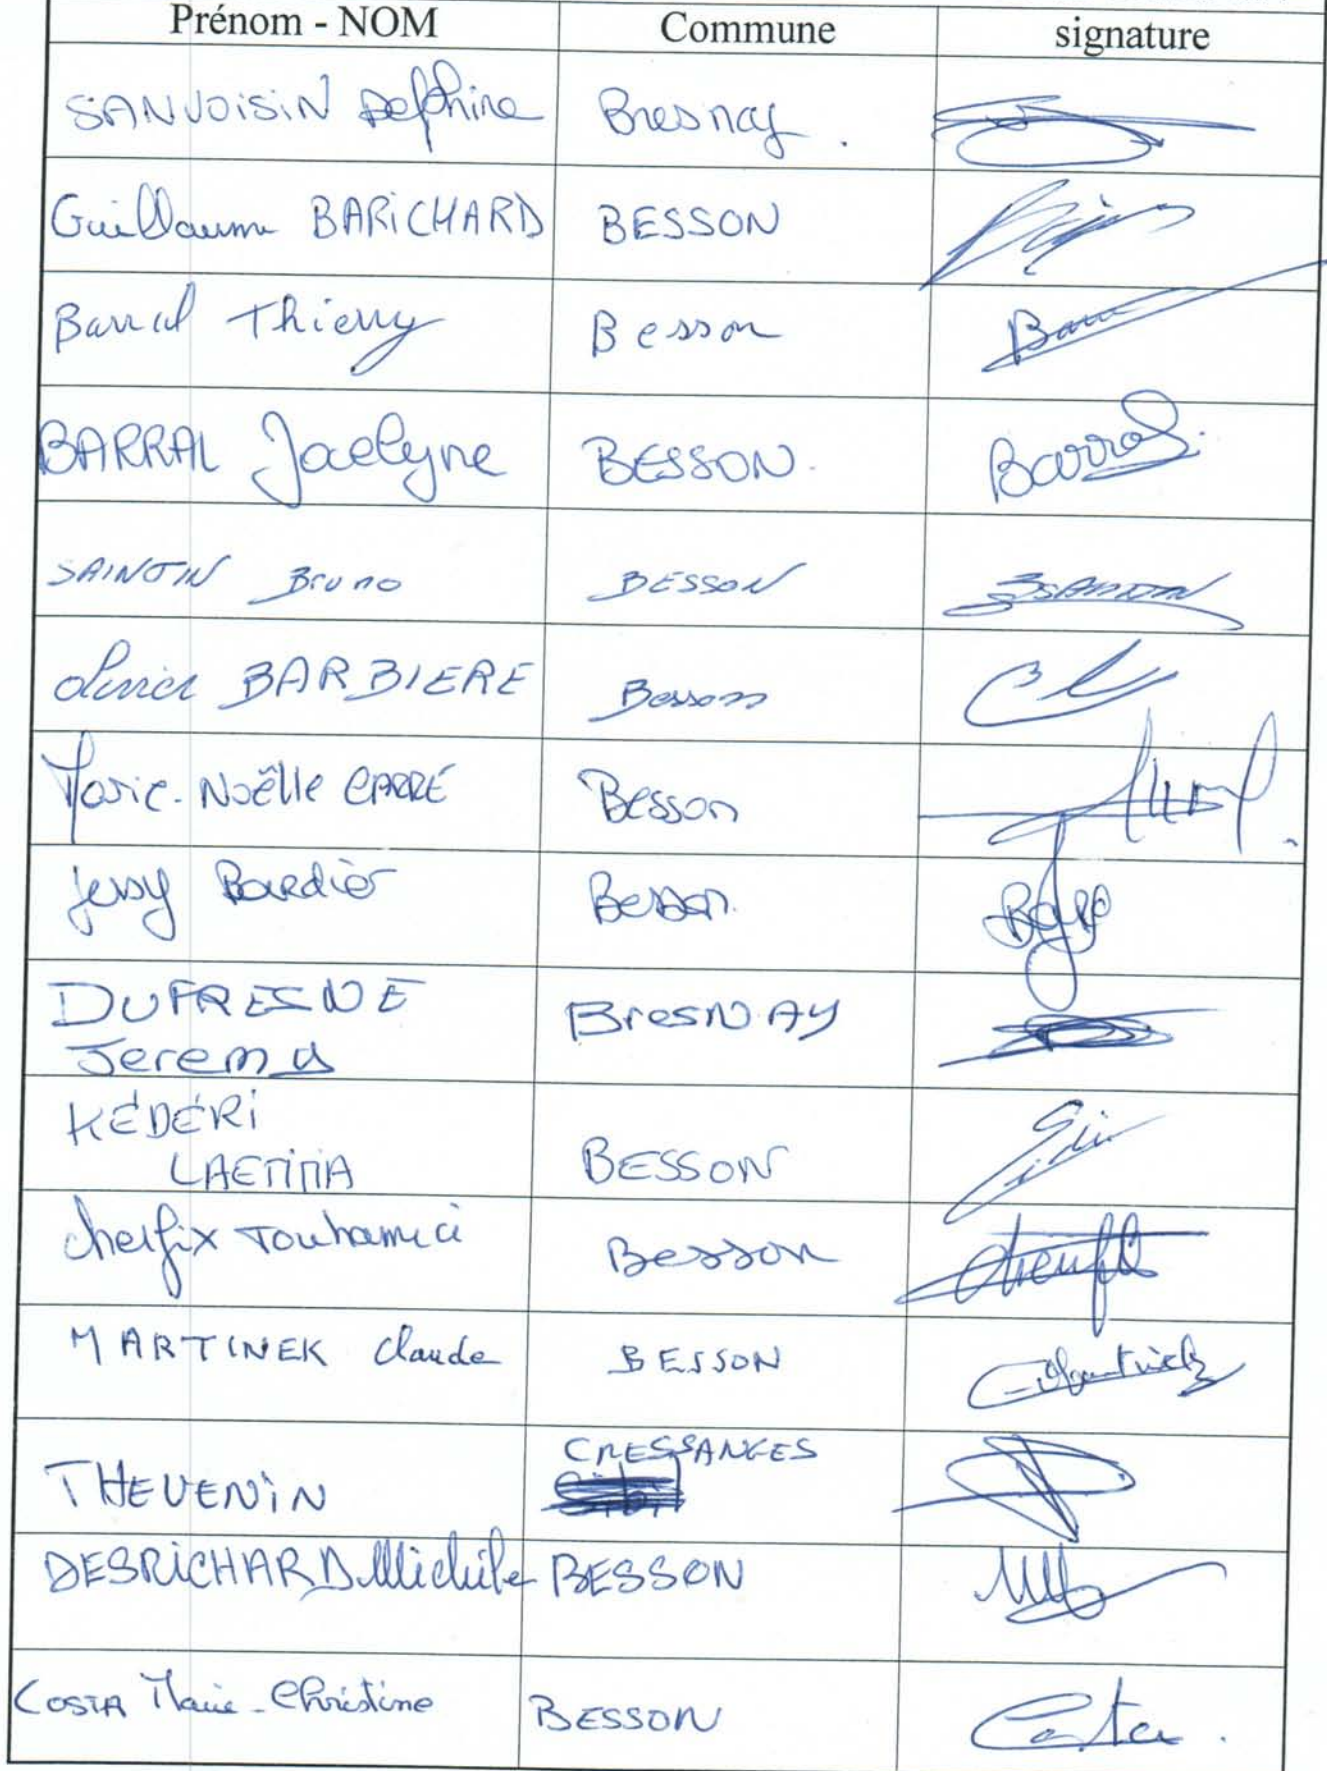 Prénom - NOM Commune signature
SANVOISIN Delphine Bresnay.
Guillaume BARICHARD BESSON
Barral Thierry Besson
BARRAL Jocelyne BESSON. Barral
SAINTIN Bruno BESSON BSAINTIN
Olivier BARBIERE Besson
Marie-Noëlle CARRÉ Besson
Jessy Bardier Besson.
DUFRESNE BresNAy
Jeremy
KÉDÉRi
LAETITIA BESSON
Cherfix Touhami Besson
MARTINEK Claude BESSON
CRESSANGES
THEVENiN
DESRiCHARD Michèle BESSON
COSTA Marie-Christine BESSON Costa.